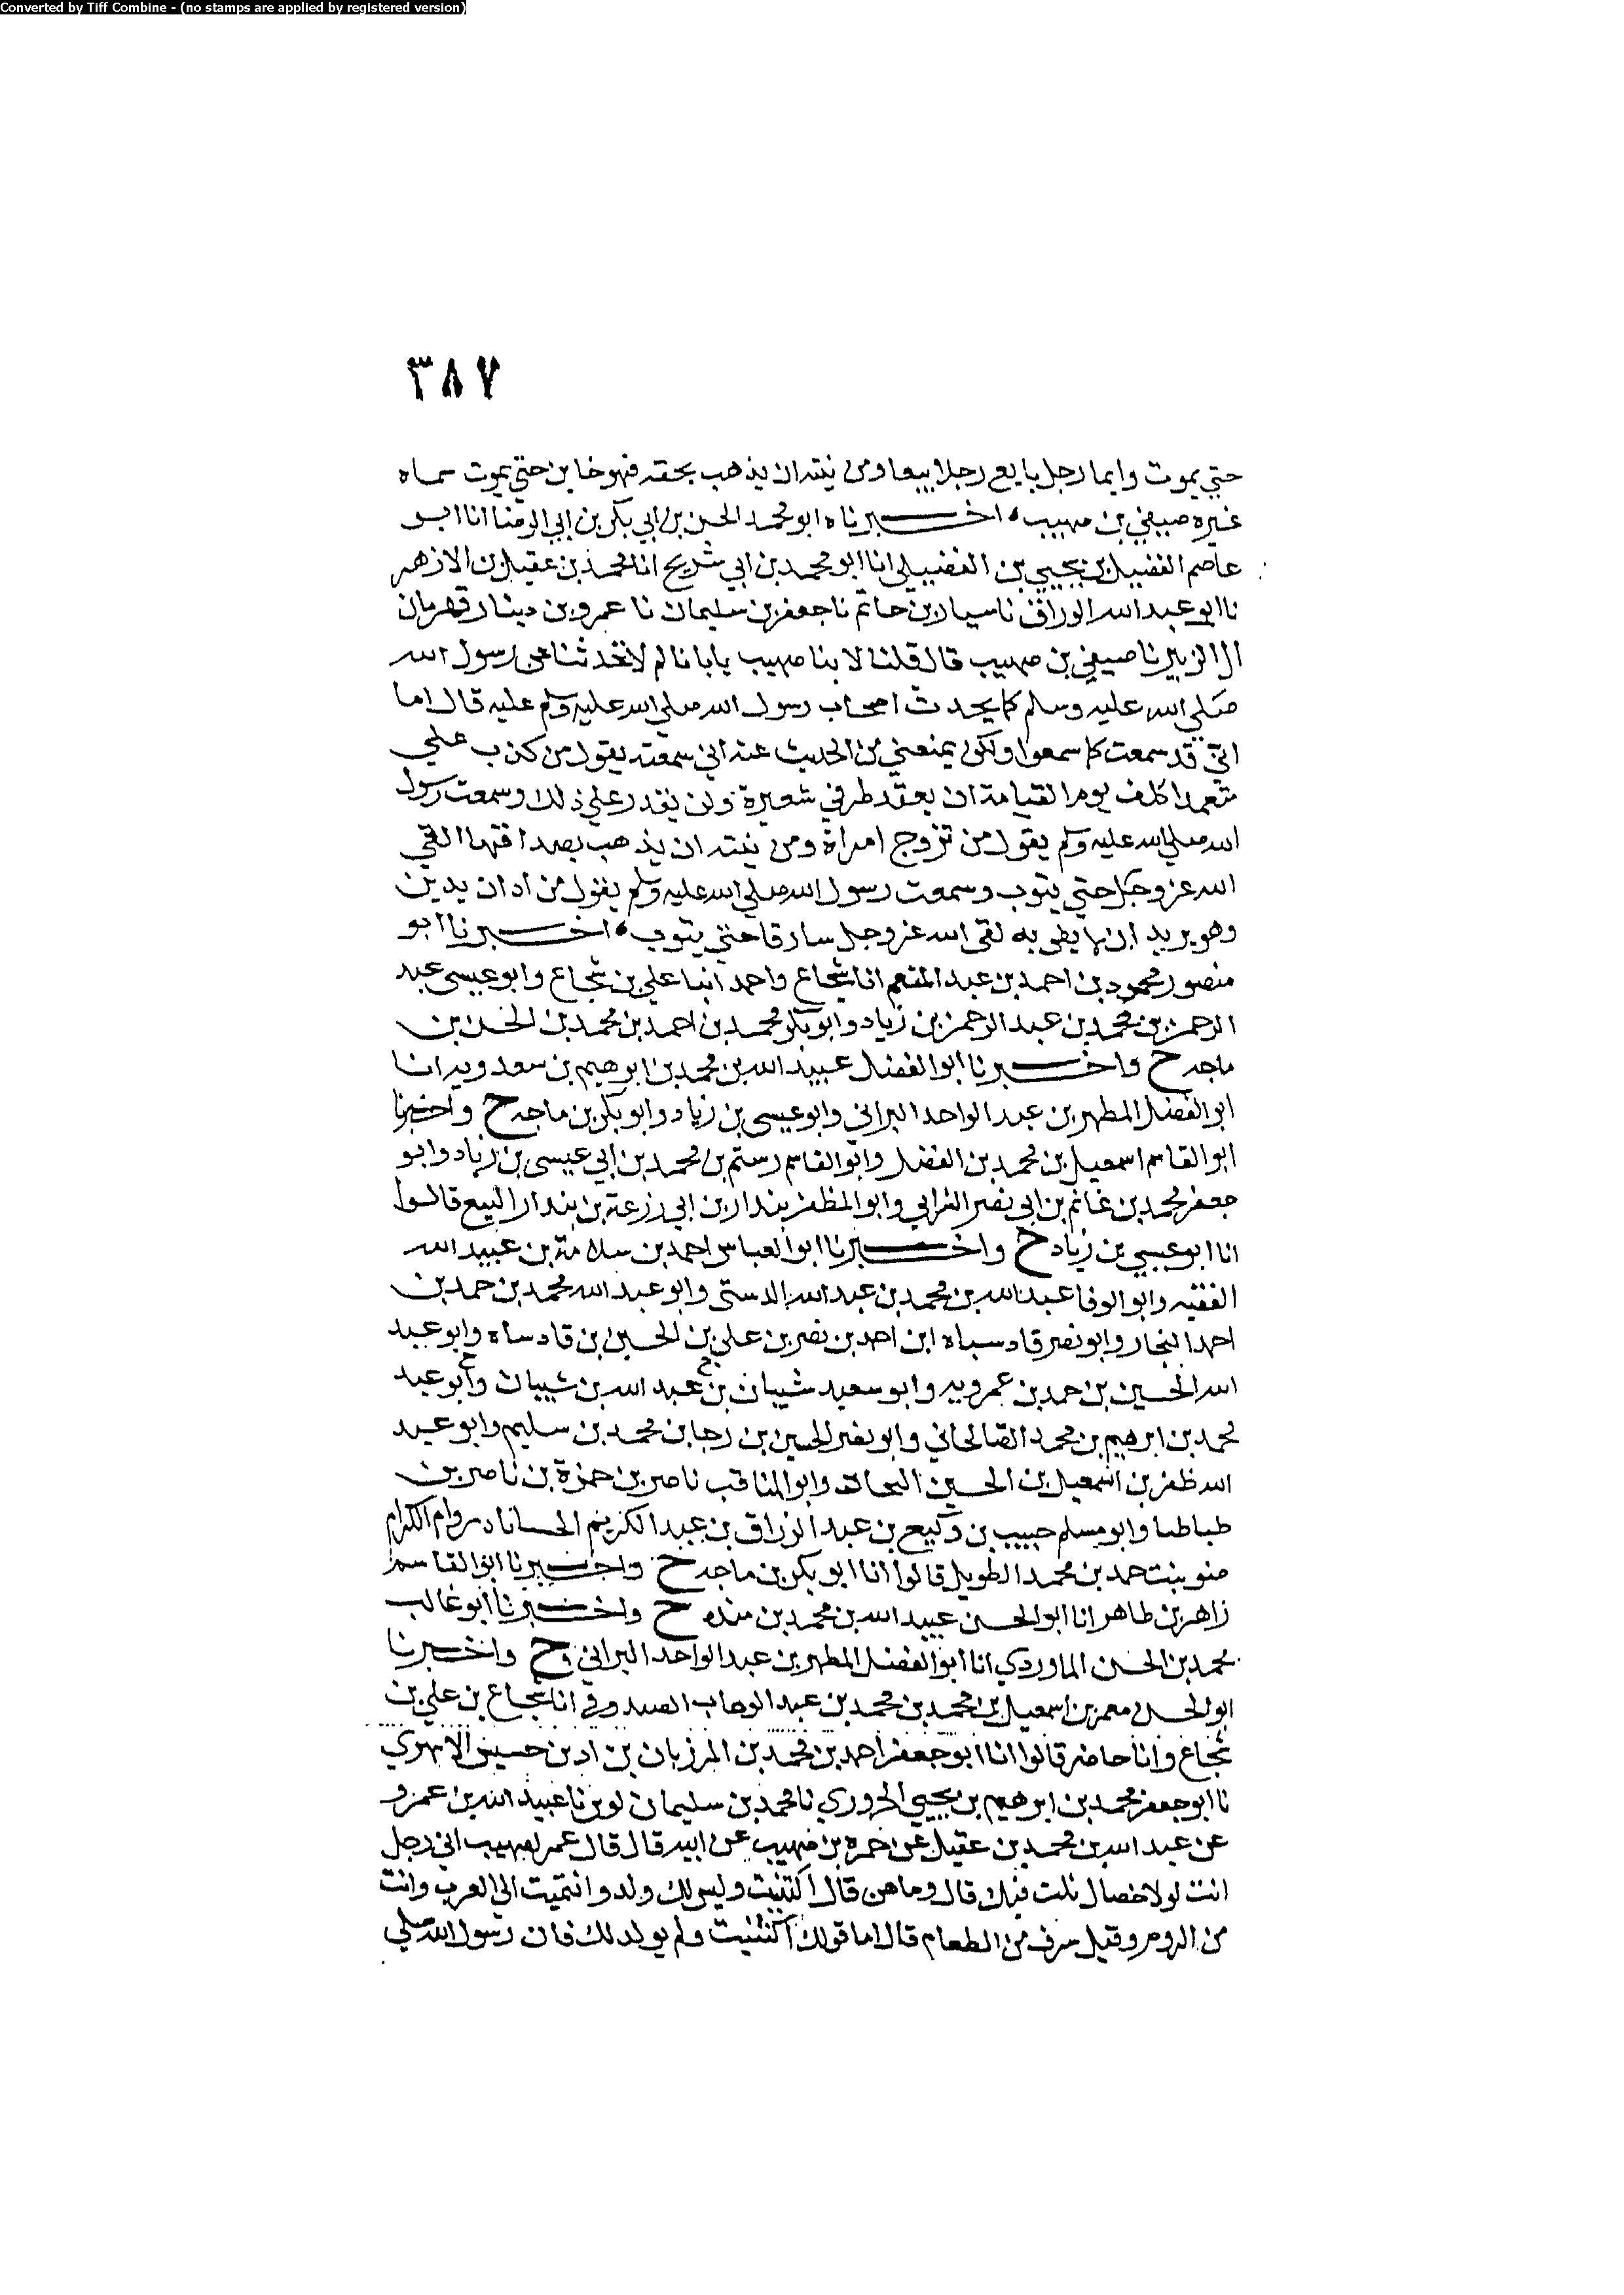 Converted by Tiff Combine - (no stamps are applied by registered version)
٣٨٧
حتي يموت وايما رجل بايع رجلا بيعا ومن نيته ان يذهب بحقه فهو خاين حتي يموت سماه
غيره صيفي بن صهيب اخبرناه ابو محمد الحسن بن ابي بكر بن ابي الرضا انا ابو
عاصم الفضيل بن يحيي بن الفضيلي انا ابو محمد بن ابي شريح انا محمد بن عقيل بن الازهر
نا ابو عبد الله الوراق نا سيار بن حاتم نا جعفر بن سليمان نا عمرو بن دينار قهرمان
ال الزبير نا صيفي بن صهيب قال قلنا لابينا صهيب يابانا لم لا تحدثنا عن رسول الله
صلي الله عليه وسلم كما يحدث اصحاب رسول الله صلي الله عليه وسلم عليه قال اما
اني قد سمعت كما سمعوا ولكن يمنعني من الحديث عنه اني سمعته يقول من كذب علي
متعمدا كلف يوم القيامة ان يعقد طرفي شعيرة ولن يقدر علي ذلك وسمعت رسول
الله صلي الله عليه وسلم يقول من تزوج امراة ومن نيته ان يذهب بصداقها القي
الله عز وجل حتي يتوب وسمعت رسول الله صلي الله عليه وسلم يقول من ادان بدين
وهو يريد ان لا يفي به لقي الله عز وجل سارقا حتي يتوب اخبرنا ابو
منصور محمود بن احمد بن عبد المنعم انا شجاع واحمد ابنا علي بن شجاع وابو عيسى عبد
الرحمن بن محمد بن عبد الرحمن بن زياد وابو بكر محمد بن احمد بن محمد بن الحسن بن
ماجه ح واخبرنا ابو الفضل عبيد الله بن محمد بن ابرهيم بن سعدويه انا
ابو الفضل المطهر بن عبد الواحد البراني وابو عيسى بن زياد وابو بكر بن ماجه ح واخبرنا
ابو القاسم اسمعيل بن محمد بن الفضل وابو القاسم رستم بن محمد بن ابي عيسى بن زياد وابو
جعفر محمد بن غانم بن ابي نصر الشرابي وابو المظفر بندار بن ابي زرعة بن بندار البيع قالوا
انا ابو عيسي بن زياد ح واخبرنا ابو العباس احمد بن سلامة بن عبيد الله
الفقيه وابو الوفا عبد الله بن محمد بن عبد الله الدستي وابو عبد الله محمد بن حمد بن
احمد النجار وابو نصر قادسباه ابن احمد بن نصر بن علي بن الحسين بن قادساه وابو عبد
الله الحسين بن حمد بن عمرويه وابو سعيد شيبان بن عبد الله بن شيبان وابو عبد
محمد بن ابرهيم بن محمد الصالحاني وابو نصر الحسين بن رجا بن محمد بن سليم وابو عبد
الله ظفر بن اسمعيل بن الحسين وابو المناقب ناصر بن حمزة بن ناصر بن
طباطبا وابو مسلم حبيب بن وكيع بن عبد الرزاق بن عبد الكريم وام الكرام
بنت حمد بن محمد الطويل قالوا انا ابو بكر بن ماجه ح واخبرنا ابو القاسم
زاهر بن طاهر انا ابو الحسن عبيد الله بن محمد بن منده ح واخبرنا ابو غالب
محمد بن الحسن الماوردي انا ابو الفضل المطهر بن عبد الواحد البراني ح واخبرنا
معمر بن اسمعيل بن محمد بن محمد بن عبد الوهاب انا شجاع بن علي بن
شجاع وانا حاضر قالوا انا ابو جعفر احمد بن محمد بن المرزبان بن ادين حسيس الابهري
نا ابو جعفر محمد بن ابرهيم بن يحيي الحزوري نا محمد بن سليمان لوين نا عبيد الله بن عمرو
عن عبد الله بن محمد بن عقيل عن حمزه بن صهيب عن ابيه قال قال عمر لصهيب اي رجل
انت لولا خصال ثلث فيك قال وما هن قال اكتنيت وليس لك ولد وانتميت الي العرب وانت
من الروم وفيك سرف من الطعام قال اما قولك اكتنيت ولم يولد لك فان رسول الله صلي